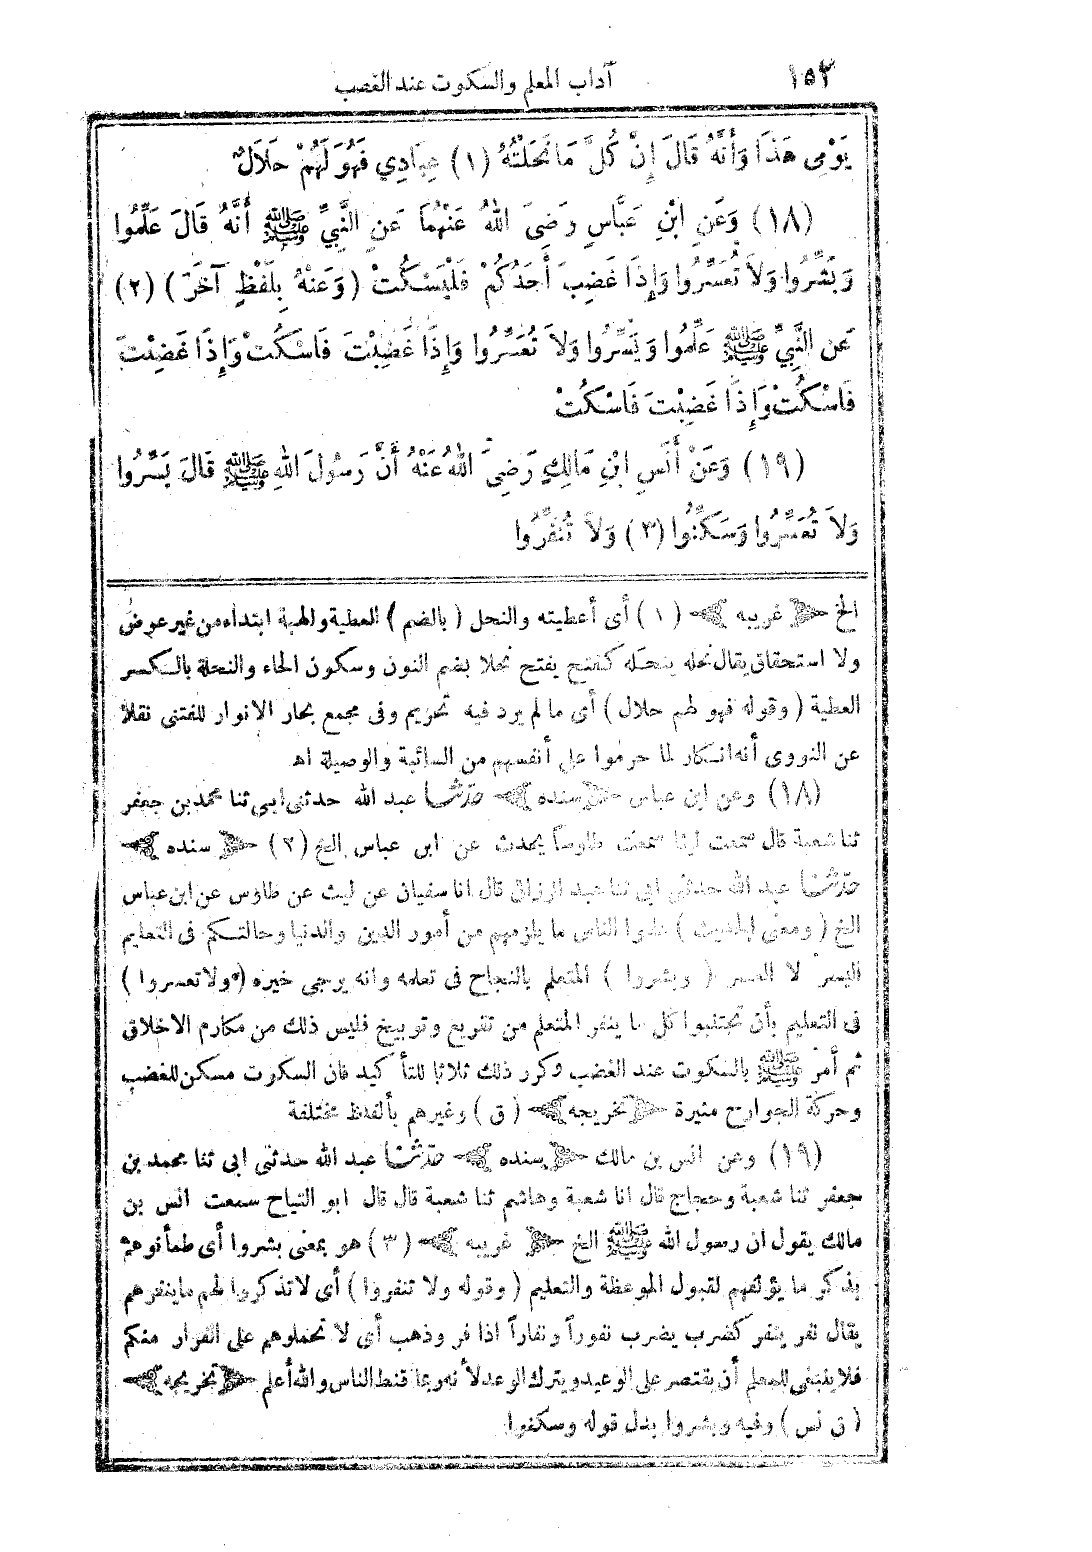 ١٥٣
آداب المعلم والسكوت عند الغضب
يَوْمِى هَذَا وَأَنَّهُ قَالَ إِنَّ كُلَّ مَا نَحَلْتُهُ (١) عِبَادِي فَهُوَ لَهُمْ حَلَالٌ
(١٨) وَعَنِ ابْنِ عَبَّاسٍ رَضِىَ اللهُ عَنْهُمَا عَنِ النَّبِيِّ ﷺ أَنَّهُ قَالَ عَلِّمُوا
وَبَشِّرُوا وَلَا تُعَسِّرُوا وَإِذَا غَضِبَ أَحَدُكُمْ فَلْيَسْكُتْ (وَعَنْهُ بِلَفْظٍ آخَرَ) (٢)
عَنِ النَّبِيِّ ﷺ عَلِّمُوا وَيَسِّرُوا وَلَا تُعَسِّرُوا وَإِذَا غَضِبْتَ فَاسْكُتْ وَإِذَا غَضِبْتَ
فَاسْكُتْ وَإِذَا غَضِبْتَ فَاسْكُتْ
(١٩) وَعَنْ أَنَسِ ابْنِ مَالِكٍ رَضِىَ اللهُ عَنْهُ أَنَّ رَسُولَ اللهِ ﷺ قَالَ يَسِّرُوا
وَلَا تُعَسِّرُوا وَسَكِّنُوا (٣) وَلَا تُنَفِّرُوا
الخ ﴿ غريبه ﴾ (١) أى أعطيته والنحل (بالضم) العطية والهبة ابتداء من غير عوض
ولا استحقاق يقال نحله ينحله كفتح يفتح نحلا بضم النون وسكون الحاء والنحلة بالكسر
العطية (وقوله فهو لهم حلال) أى ما لم يرد فيه تحريم وفى مجمع بحار الانوار للفتنى نقلاً
عن النووى أنه انكار لما حرموا على أنفسهم من السائبة والوصيلة اھ
(١٨) وعن ابن عباس ﴿ سنده ﴾ حدثنا عبد الله حدثنى ابى ثنا محمد بن جعفر
ثنا شعبة قال سمعت ليثا سمعت طاوساً يحدث عن ابن عباس الخ (٢) ﴿ سنده ﴾
حدثنا عبد الله حدثنى ابى ثنا عبد الرزاق قال انا سفيان عن ليث عن طاوس عن ابن عباس
الخ (ومعنى الحديث) علموا الناس ما يلزمهم من أمور الدين والدنيا وحالتكم فى التعليم
اليسر لا العسر (وبشروا) المتعلم بالنجاح فى تعلمه وانه يرجى خيره (ولا تعسروا)
فى التعليم بأن تجتنبوا كل ما ينفر المتعلم من تقريع وتوبيخ فليس ذلك من مكارم الاخلاق
ثم أمر ﷺ بالسكوت عند الغضب وكرر ذلك ثلاثا للتأكيد فان السكوت مسكن للغضب
وحركة الجوارح مثيرة ﴿ تخريجه ﴾ (ق) وغيرهم بألفاظ مختلفة
(١٩) وعن انس بن مالك ﴿ سنده ﴾ حدثنا عبد الله حدثنى ابى ثنا محمد بن
جعفر ثنا شعبة وحجاج قال انا شعبة وهاشم ثنا شعبة قال قال ابو التياح سمعت انس بن
مالك يقول ان رسول الله ﷺ الخ ﴿ غريبه ﴾ (٣) هو بمعنى بشروا أى طمأنوهم
بذكر ما يؤلفهم لقبول الموعظة والتعليم (وقوله ولا تنفروا) أى لا تذكروا لهم ما ينفرهم
يقال نفر ينفر كضرب يضرب نفوراً ونفاراً اذا فر وذهب أى لا تحملوهم على الفرار منكم
فلا ينبغى للمعلم أن يقتصر على الوعيد ويترك الوعد لأنه ربما قنط الناس والله أعلم ﴿ تخريجه ﴾
(ق نس) وفيه وبشروا بدل قوله وسكنوا